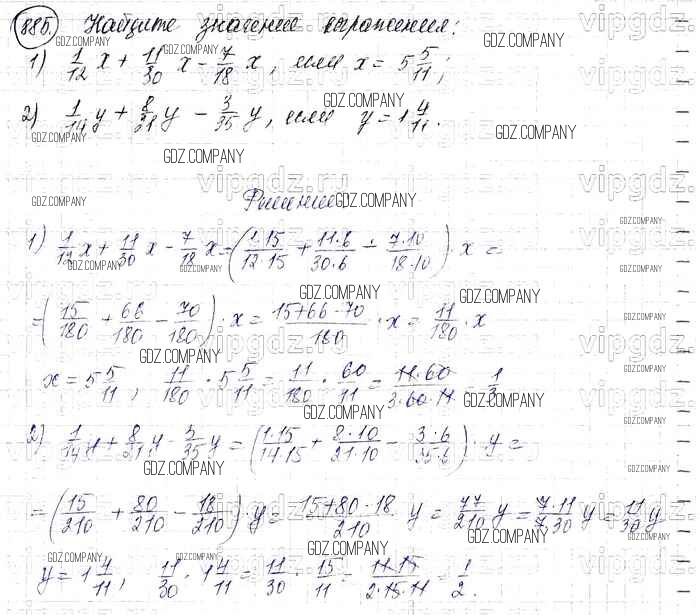 885. Найдите значение выражения:
1) 1/12 x + 11/30 x - 7/18 x, если x = 5 5/11;
2) 1/14 y + 8/21 y - 3/35 y, если y = 1 4/11.
Решение
1) 1/12 x + 11/30 x - 7/18 x = (1·15/12·15 + 11·6/30·6 - 7·10/18·10) · x =
= (15/180 + 66/180 - 70/180) · x = 15+66-70/180 · x = 11/180 · x
x = 5 5/11, 11/180 · 5 5/11 = 11/180 · 60/11 = 11·60/3·60·11 = 1/3
2) 1/14 y + 8/21 y - 3/35 y = (1·15/14·15 + 8·10/21·10 - 3·6/35·6) · y =
= (15/210 + 80/210 - 18/210) · y = 15+80-18/210 y = 77/210 y = 7·11/7·30 y = 11/30 y
y = 1 4/11, 11/30 · 1 4/11 = 11/30 · 15/11 = 11·15/2·15·11 = 1/2.
GDZ.COMPANY
vipgdz.ru